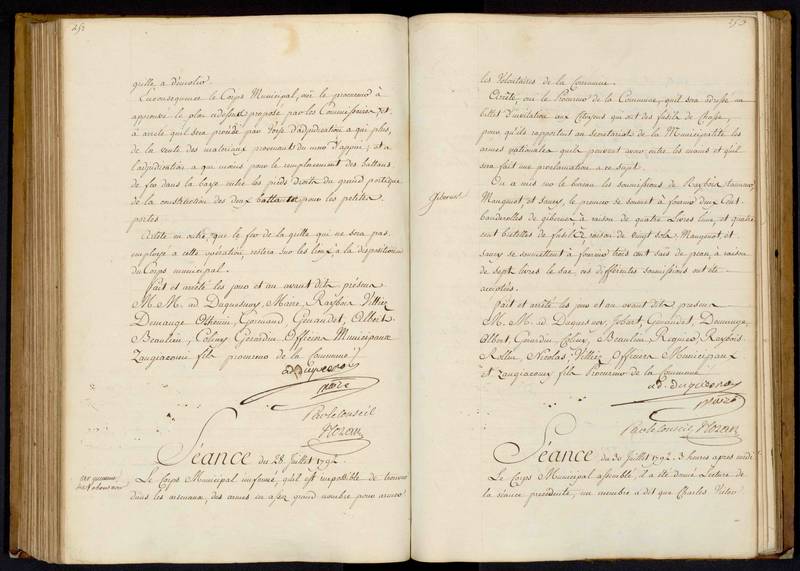 252
grille, a démolir
En conséquence le Corps Municipal, ouï le procureur à
approuvé le plan cidessus proposé par les Commissaires, et
à arrêté qu'il sera procédé par voye d'adjudication a qui plus,
de la vente des materiaux provenant du mur d'appui; et a
l'adjudication a qui moins pour le remplacement des battans
de fer dans la baye entre les pieds droits du grand portique
de la construction des deux battants pour les petites
portes
Arrête en outre, que le fer de la grille qui ne sera pas
employé a cette opération, restera sur les lieux, à la disposition
du Corps municipal.
Fait et arrêté les jour et an avant dits présens
M. M. ad Duquesnoy, Maire, Raybois Villiez
Demange Othenin, Gormand, Genaudet, Albert,
Beaulieu, Coliny Gerardin Officiers Municipaux
Zangiacomi fils procureur de la Commune
ad Duquesnoy
maire
Par le Conseil
Nozan
Séance du 28 Juillet 1792.
Le Corps Municipal informé, qu'il est impossible de trouver
dans les arsenaux, des armes en assez grand nombre pour armer
253
les Volontaires de la Commune.
Arrête, ouï le Procureur de la Commune, qu'il sera adressé un
billet d'invitation aux Citoyens qui ont des fusils de chasse,
pour qu'ils rapportent au secretariat de la Municipalité les
armes nationales qu'ils peuvent avoir entre les mains et qu'il
sera fait une proclamation a ce sujet.
Gibernes
On a mis sur le bureau les soumissions de Raybois tanneur,
Mangenot, et saucy, le premier se soumet à fournir deux Cent
banderolles de gibernes à raison de quatre Livres l'une, et quatre
cent bretelles de fusil à raison de vingt sols. Mangenot, et
saucy se soumettent à fournir trois cent sacs de peau, à raison
de sept livres le sac, ces différentes soumissions ont été
acceptées.
Fait et arrêté les jour et an avant dits présens
M. M. ad Duquesnoy, Jobert, Genaudet, Demange,
Albert, Gerardin, Coliny, Beaulieu, Regnier, Raybois
Rollin, Nicolas, Villiez Officiers Municipaux
et Zangiacomi fils Procureur de la Commune
ad. duquesnoy
maire
Par le Conseil Nozan
Séance du 30 Juillet 1792. 3 heures après midi
Le Corps Municipal assemblé, il a été donné Lecture de
la séance precedente, un membre a dit que Charles Victor